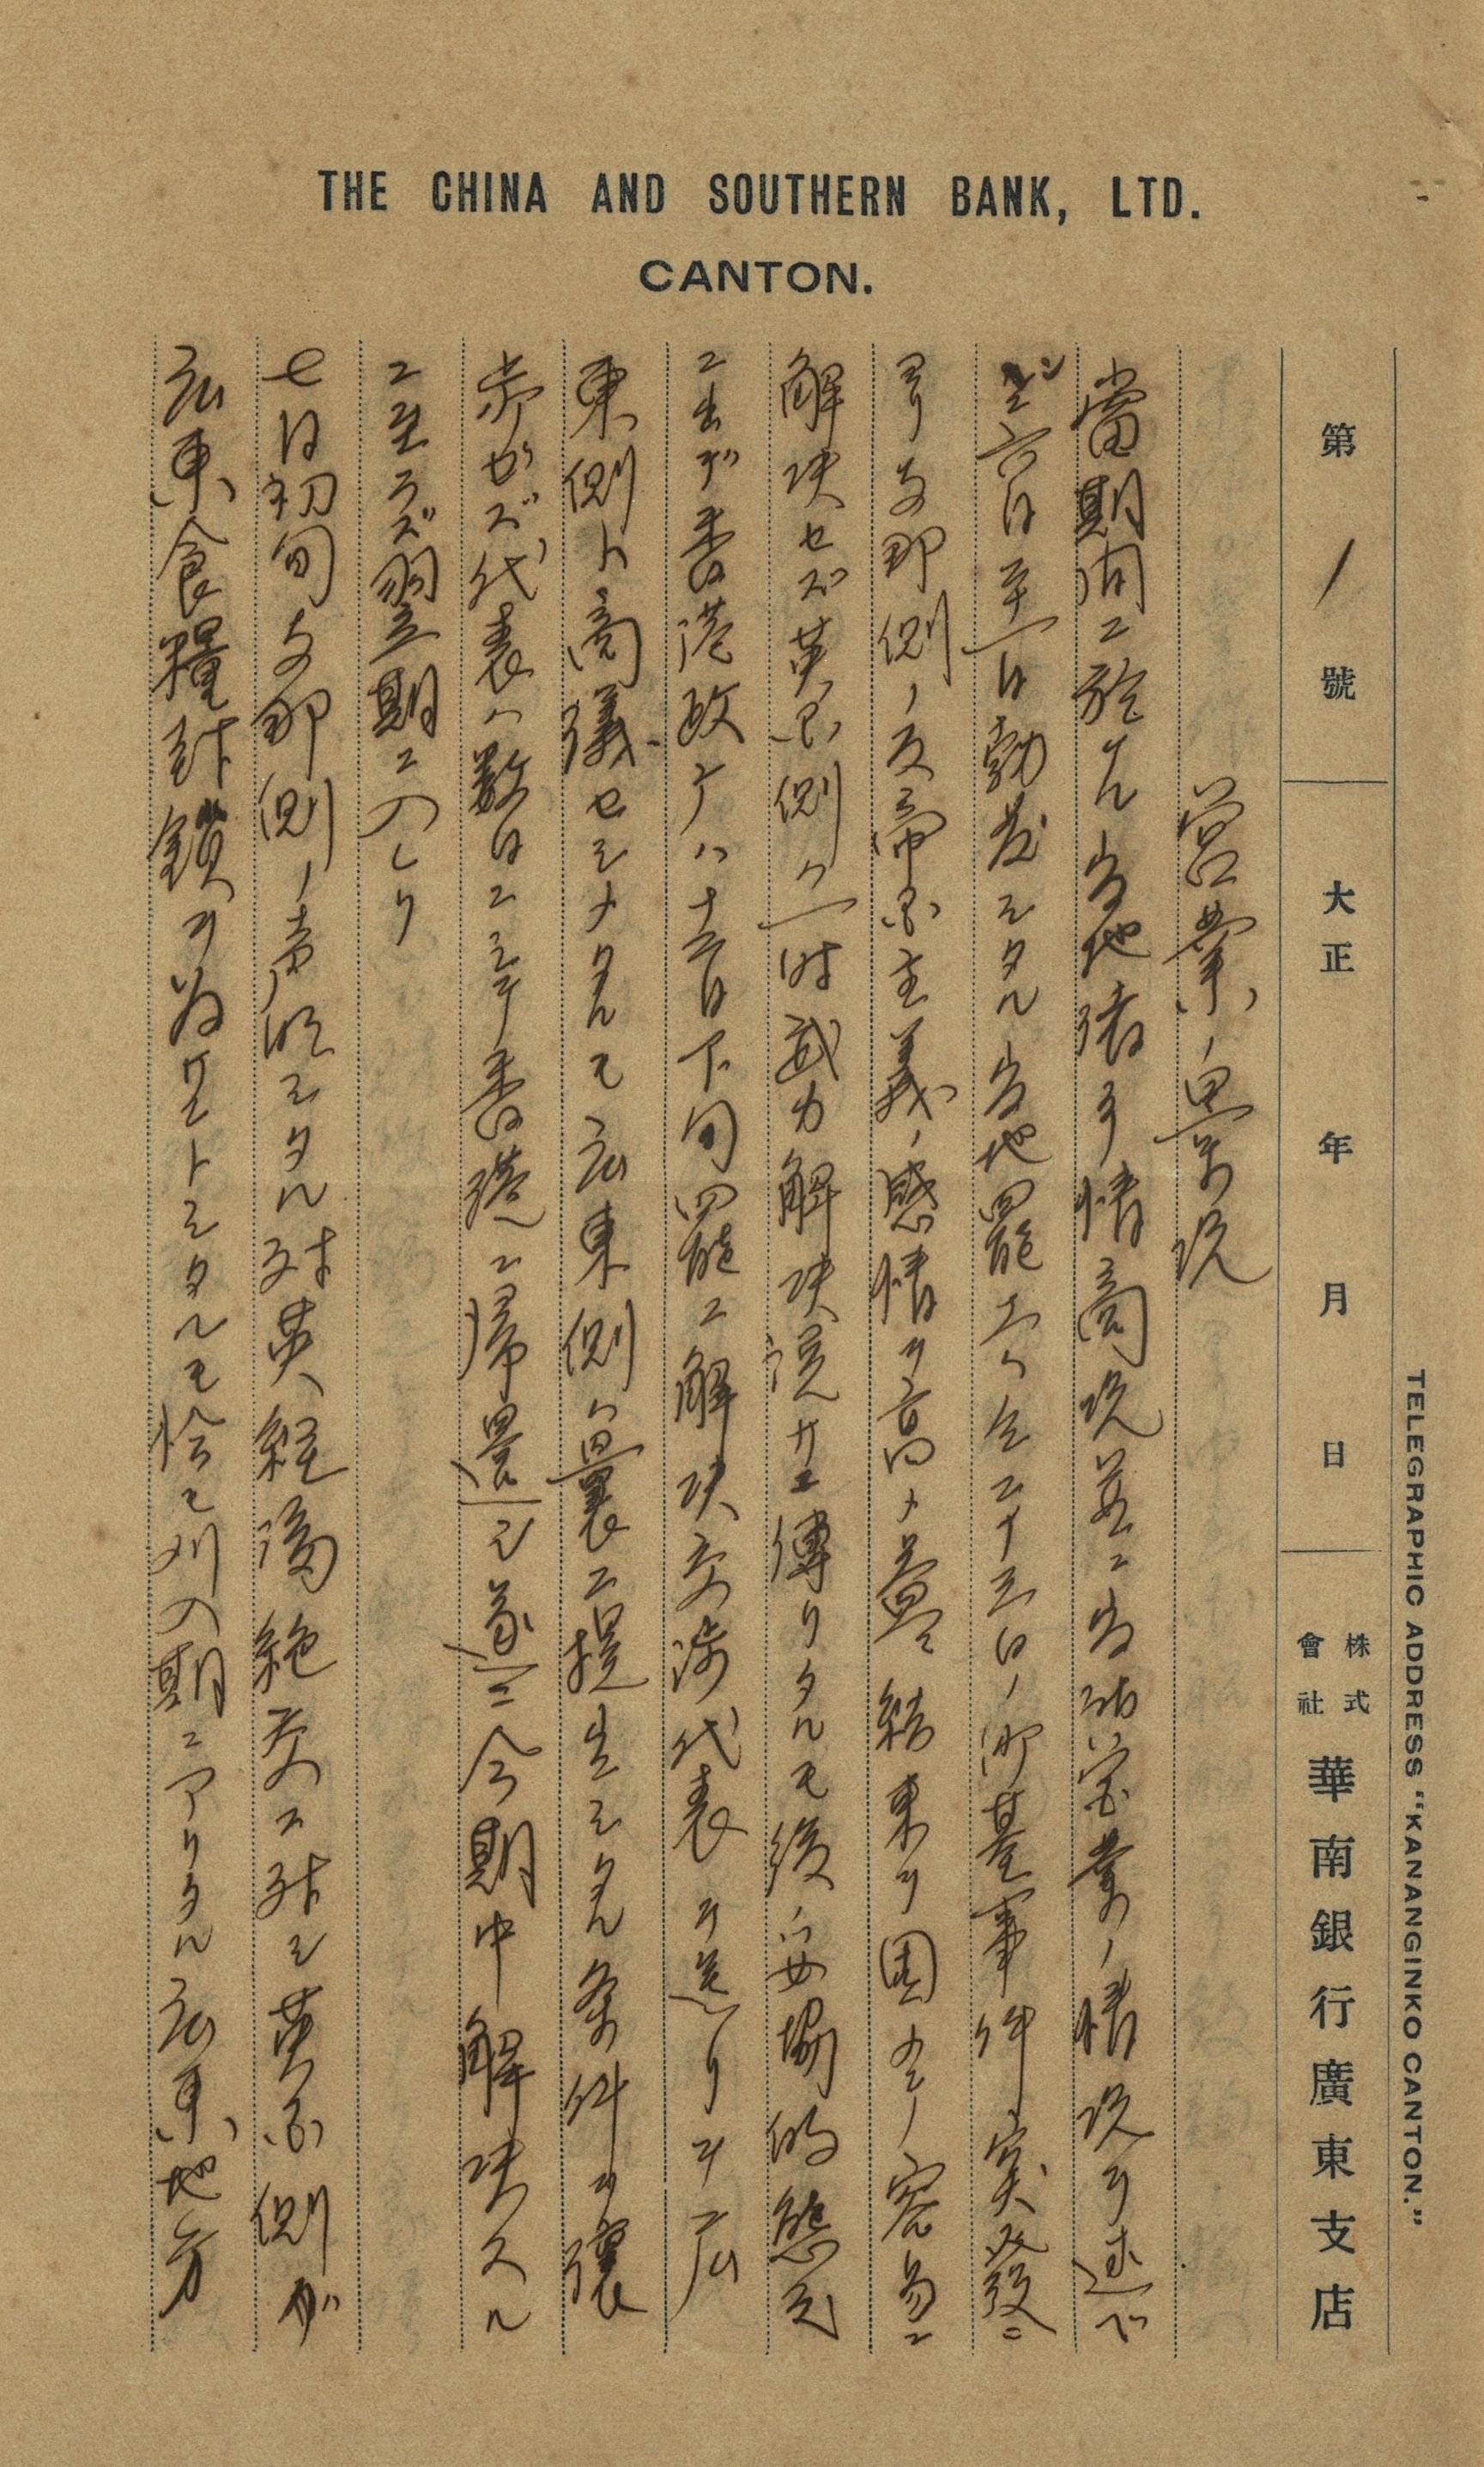 THE CHINA AND SOUTHERN BANK, LTD.
CANTON.
TELEGRAPHIC ADDRESS “KANANGINKO CANTON.”
第 1 號 大正 年 月 日 株式會社 華南銀行廣東支店
営業ノ景況
當期間ニ於ケル当地諸事情商況並ニ当店営業ノ情況ヲ述ベン
ニ六日廿一日勃発シタル当地罷工ハ仝二十三日ノ沙基事件突發ニ
ヨリ支那側ノ反帝国主義ノ感情ヲ高メ益々結束ヲ固メ容易ニ
解决セズ英国側ハ一時武力解决説サエ傳リタルモ後ハ妥協的態度
ニ出デ香港政廳ハ十二月下旬罷工解决交渉代表ヲ送リテ広
東側ト商議セシメタルモ広東側ハ曩ニ提出シタル条件ヲ讓
歩セズ代表ハ数日ニシテ香港ニ帰還シ遂ニ今期中解决スル
ニ至ラズ翌期ニ入レリ
七日初旬支那側ノ声明シタル対英経済絶交ニ対シ英国側ガ
広東食糧封鎖ヲ為サントシタルモ恰モ刈入期ニアリタル広東地方